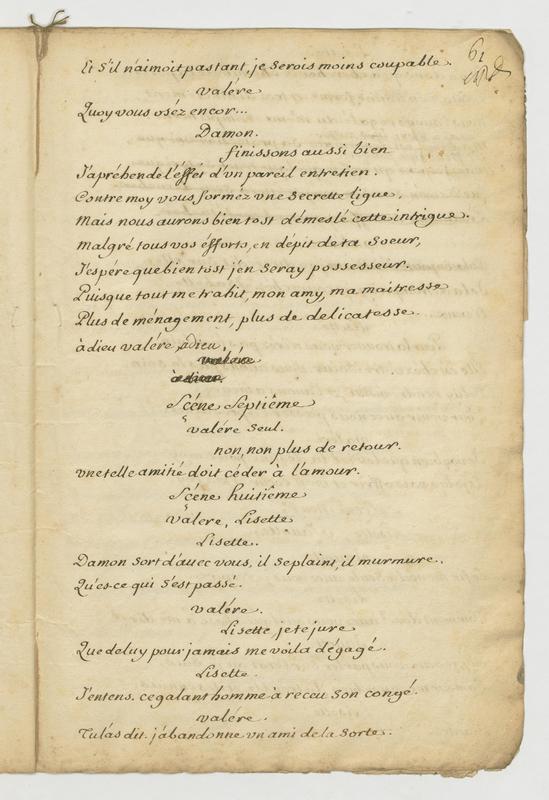 61
Et S'il n'aimoit pas tant, je Serois moins coupable.
valére
Quoy vous oséz encor...
Damon.
finissons aussi bien
J'apréhende l'éffét d'vn paréil entretien.
Contre moy vous forméz vne Secrette ligue,
Mais nous aurons bien tost démeslé cette intrigue.
Malgré tous vos éfforts, en dépit de ta Soeur,
J'espére que bien tost j'en Seray possesseur.
Puisque tout me trahit, mon amy, ma maitresse
Plus de ménagement, plus de delicatesse.
à dieu valére, adieu,
valére
à dieu.
Scéne Septiême
valére Seul.
non, non plus de retour.
vne telle amitié doit céder à l'amour.
Scéne huitiême
valere, Lisette
Lisette.
Damon Sort d'auec vous, il Se plaint, il murmure.
Qu'es-ce qui S'est passé.
valére.
Lisette, je te jure
Que de luy pour jamais me voila dégagé.
Lisette.
J'entens. ce galant homme à receu Son congé.
valére.
Tu l'as dit. j'abandonne vn ami de la Sorte.